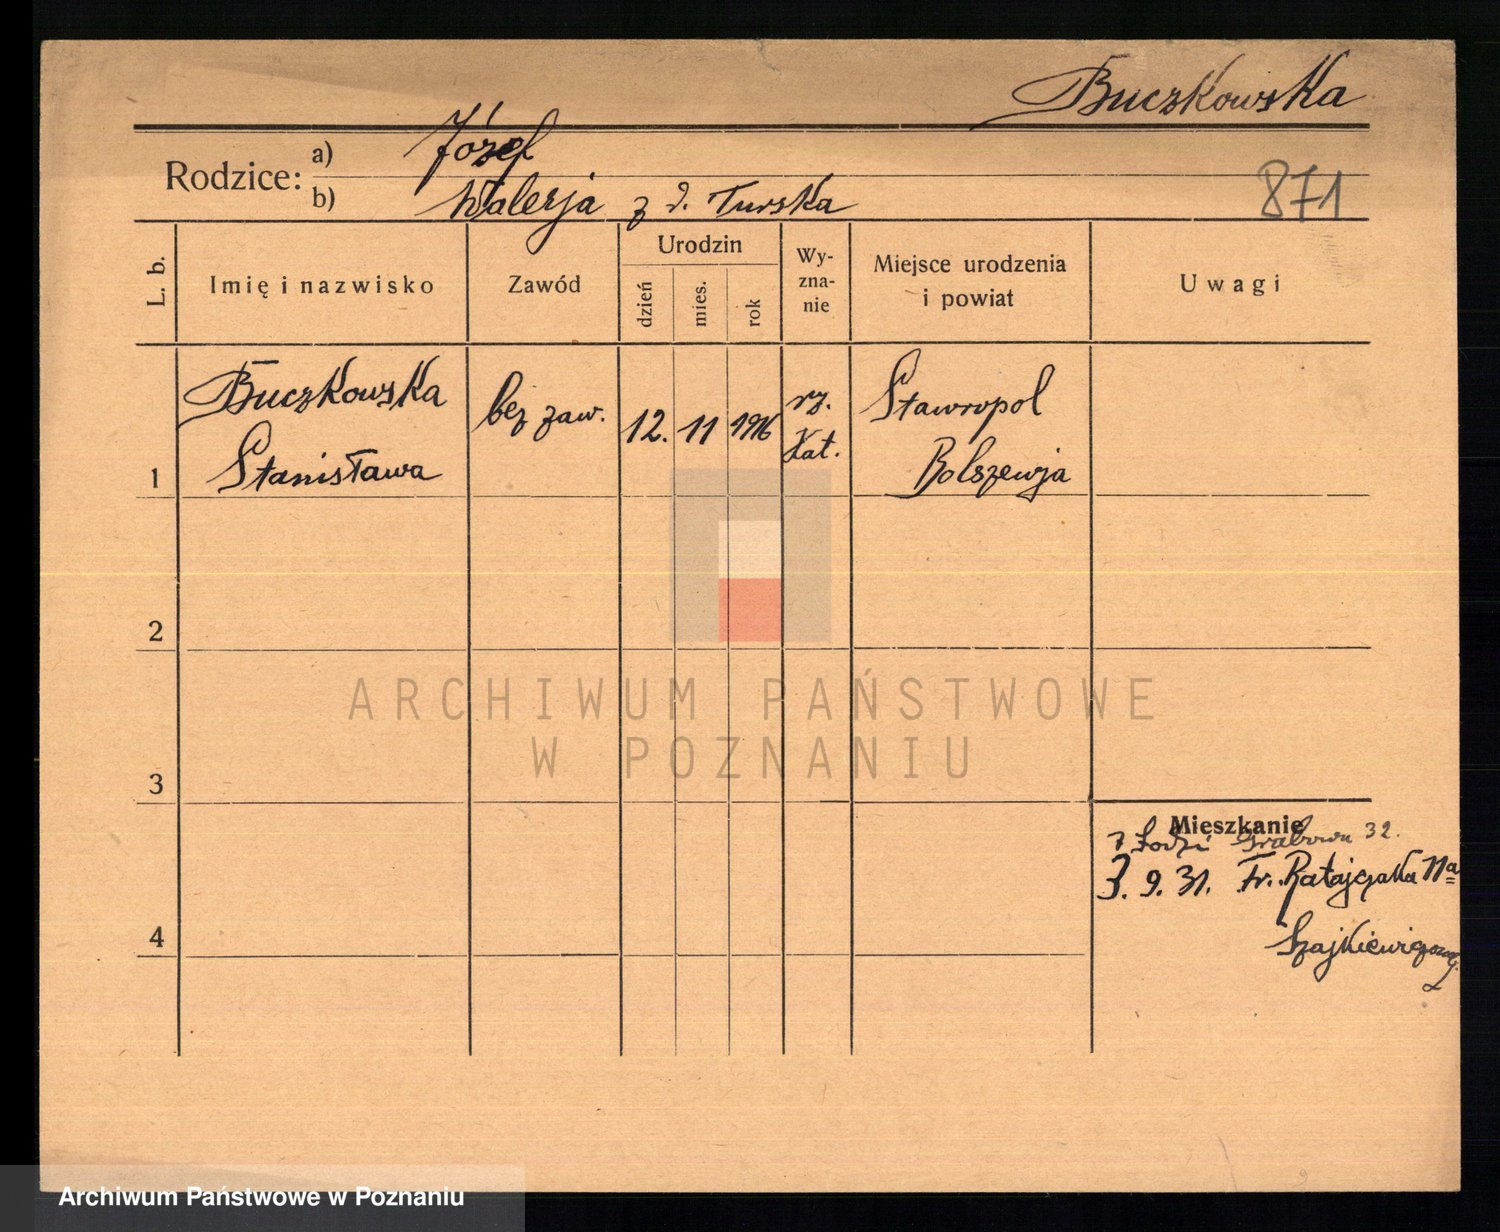 Buczkowska
Rodzice:
a) Józef
b) Walerja z d. Turska
871
L. b.
Imię i nazwisko
Zawód
Urodzin
dzień
mies.
rok
Wy-
zna-
nie
Miejsce urodzenia
i powiat
Uwagi
Buczkowska
Stanisława
bez zaw.
12.
11
1916
rz.
Kat.
Stawropol
Bolszewja
1
2
3
4
ARCHIWUM PAŃSTWOWE
W POZNANIU
Mieszkanie
z Łodzi Grabowa 32.
3. 9. 31. Fr. Ratajczaka 11a
Archiwum Państwowe w Poznaniu